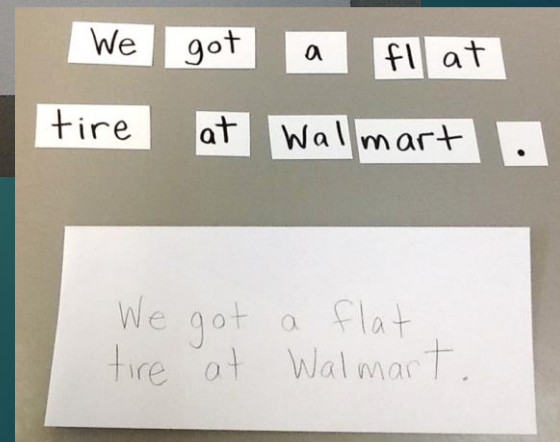 We got a fl at
tire at Wal mart .
We got a flat
tire at Walmart.